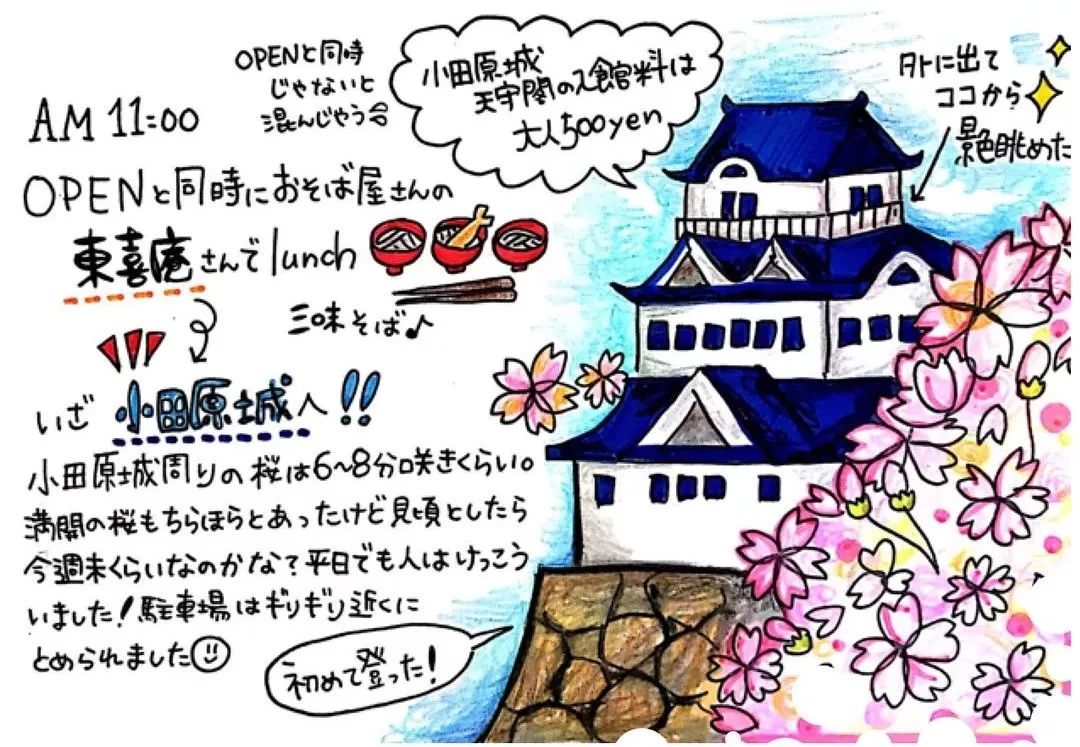 AM 11:00
OPENと同時
じゃないと
混んじゃう
OPENと同時におそば屋さんの
東喜庵さんでlunch
三味そば♪
いざ 小田原城へ!!
小田原城周りの桜は6~8分咲きくらい。
満開の桜もちらほらとあったけど見頃としたら
今週末くらいなのかな?平日でも人はけっこう
いました!駐車場はギリギリ近くに
とめられました
小田原城
天守閣の入館料は
大人500yen
外に出て
ココから
景色眺めた
初めて登った!